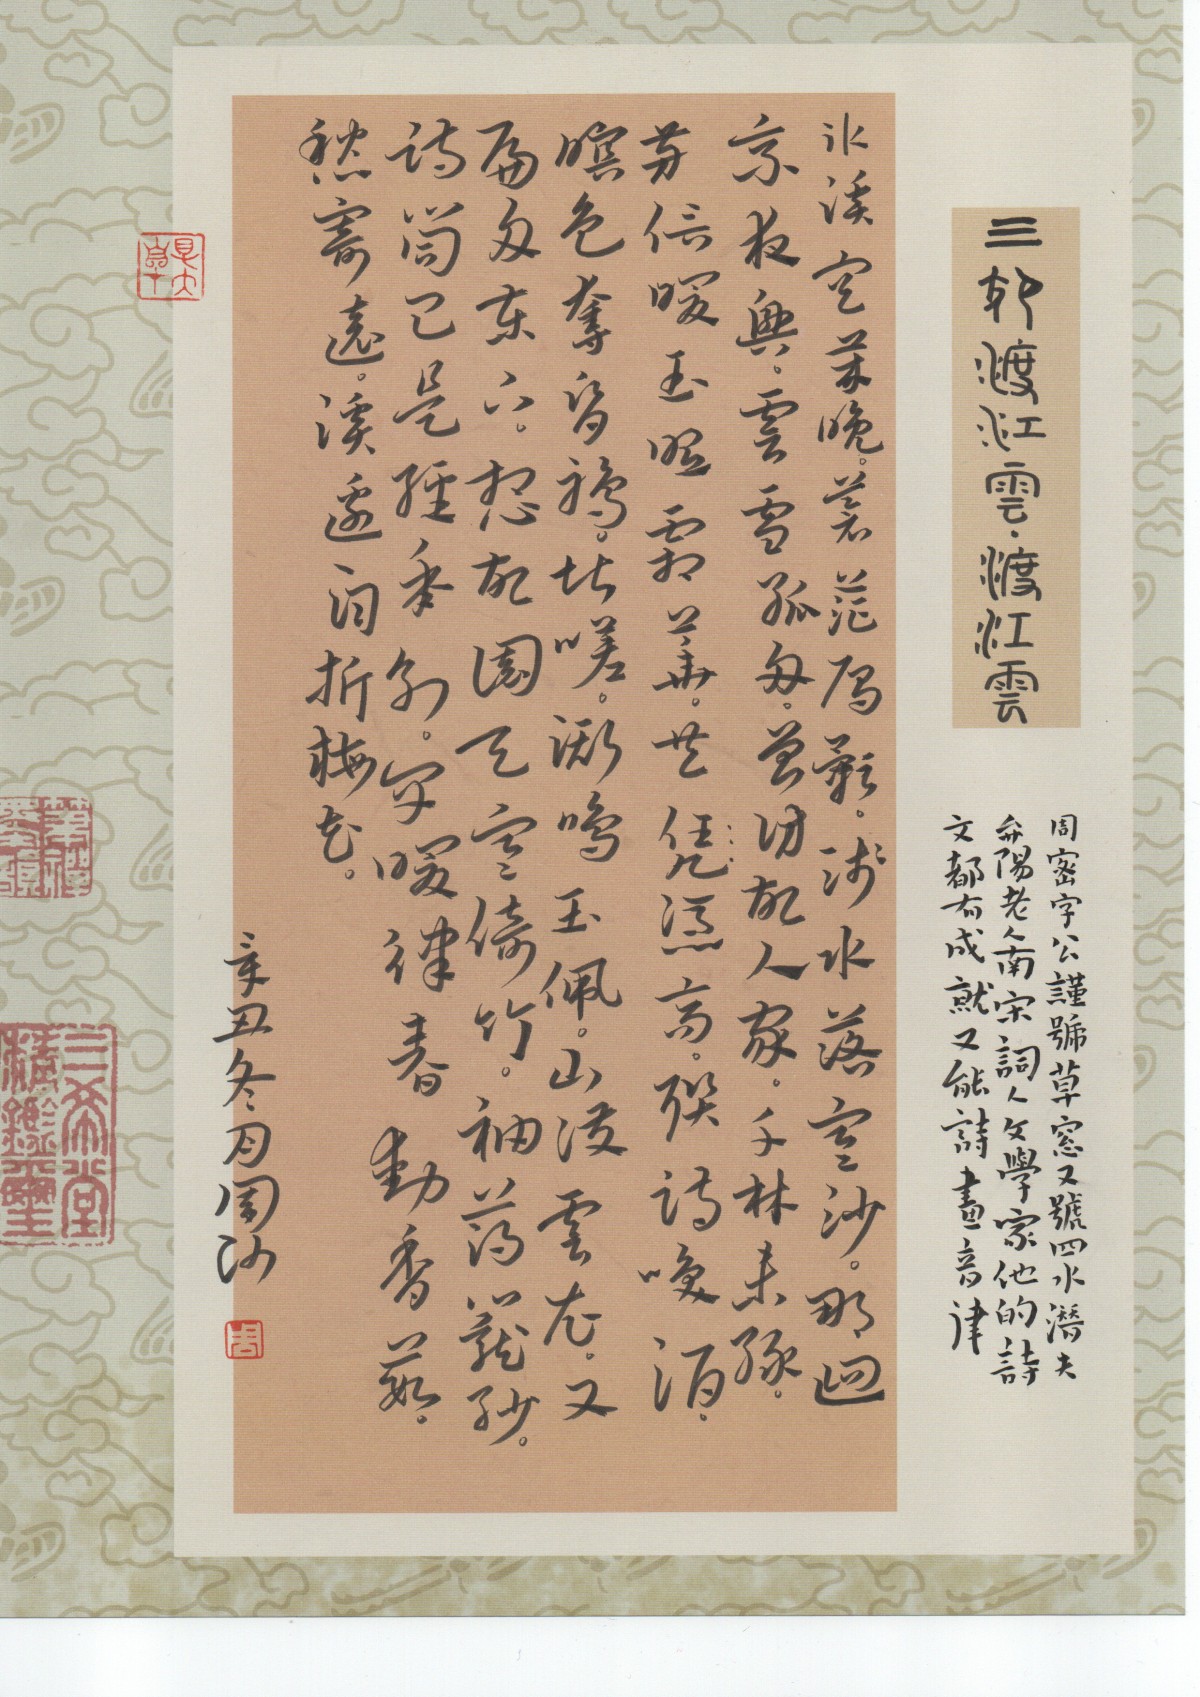 三犯渡江雲·渡江雲
周密字公謹號草窓又號四水潛夫
弁陽老人南宋詞人文學家他的詩
文都有成就又能詩畫音律
冰溪空歲晚。蒼茫雁影。淺水落寒沙。那迴
乘夜興。雲雪孤舟。曾訪故人家。千林未綠。
芳信暖玉照霜華。共凭憑高。聯詩喚酒。
暝色奪昏鴉。堪嗟。澌鳴玉佩。山護雲衣。又
扁舟東下。想故園天寒倚竹。袖薄籠紗。
詩筒已是經年別。早暖律春動香葭。
愁寄遠。溪邊自折梅花。
辛丑冬月周
周
三希堂精鑑璽